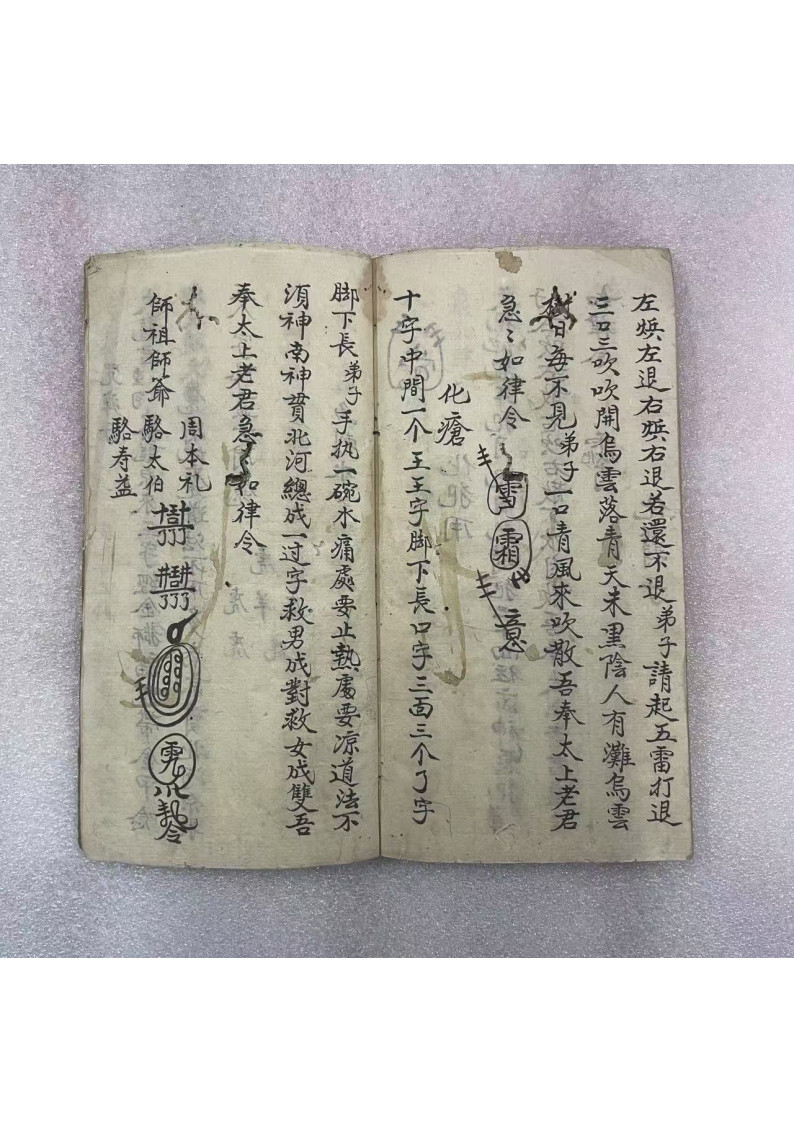 左㶽左退右㶽右退若還不退弟子請起五雷打退
三口三吹吹開烏雲落青天未黑陰人有灘烏雲
日每不見弟子一口青風來吹散吾奉太上老君
急〻如律令 雪 霜 意
化瘡
十字中間一个王王字脚下長口字三面三个了字
脚下長弟子手执一碗水痛處要止熱處要凉道法不
須神南神貫北河總成一过字救男成對救女成雙吾
奉太上老君急〻如律令
師祖師爺
周本礼
駱太伯
駱寿益